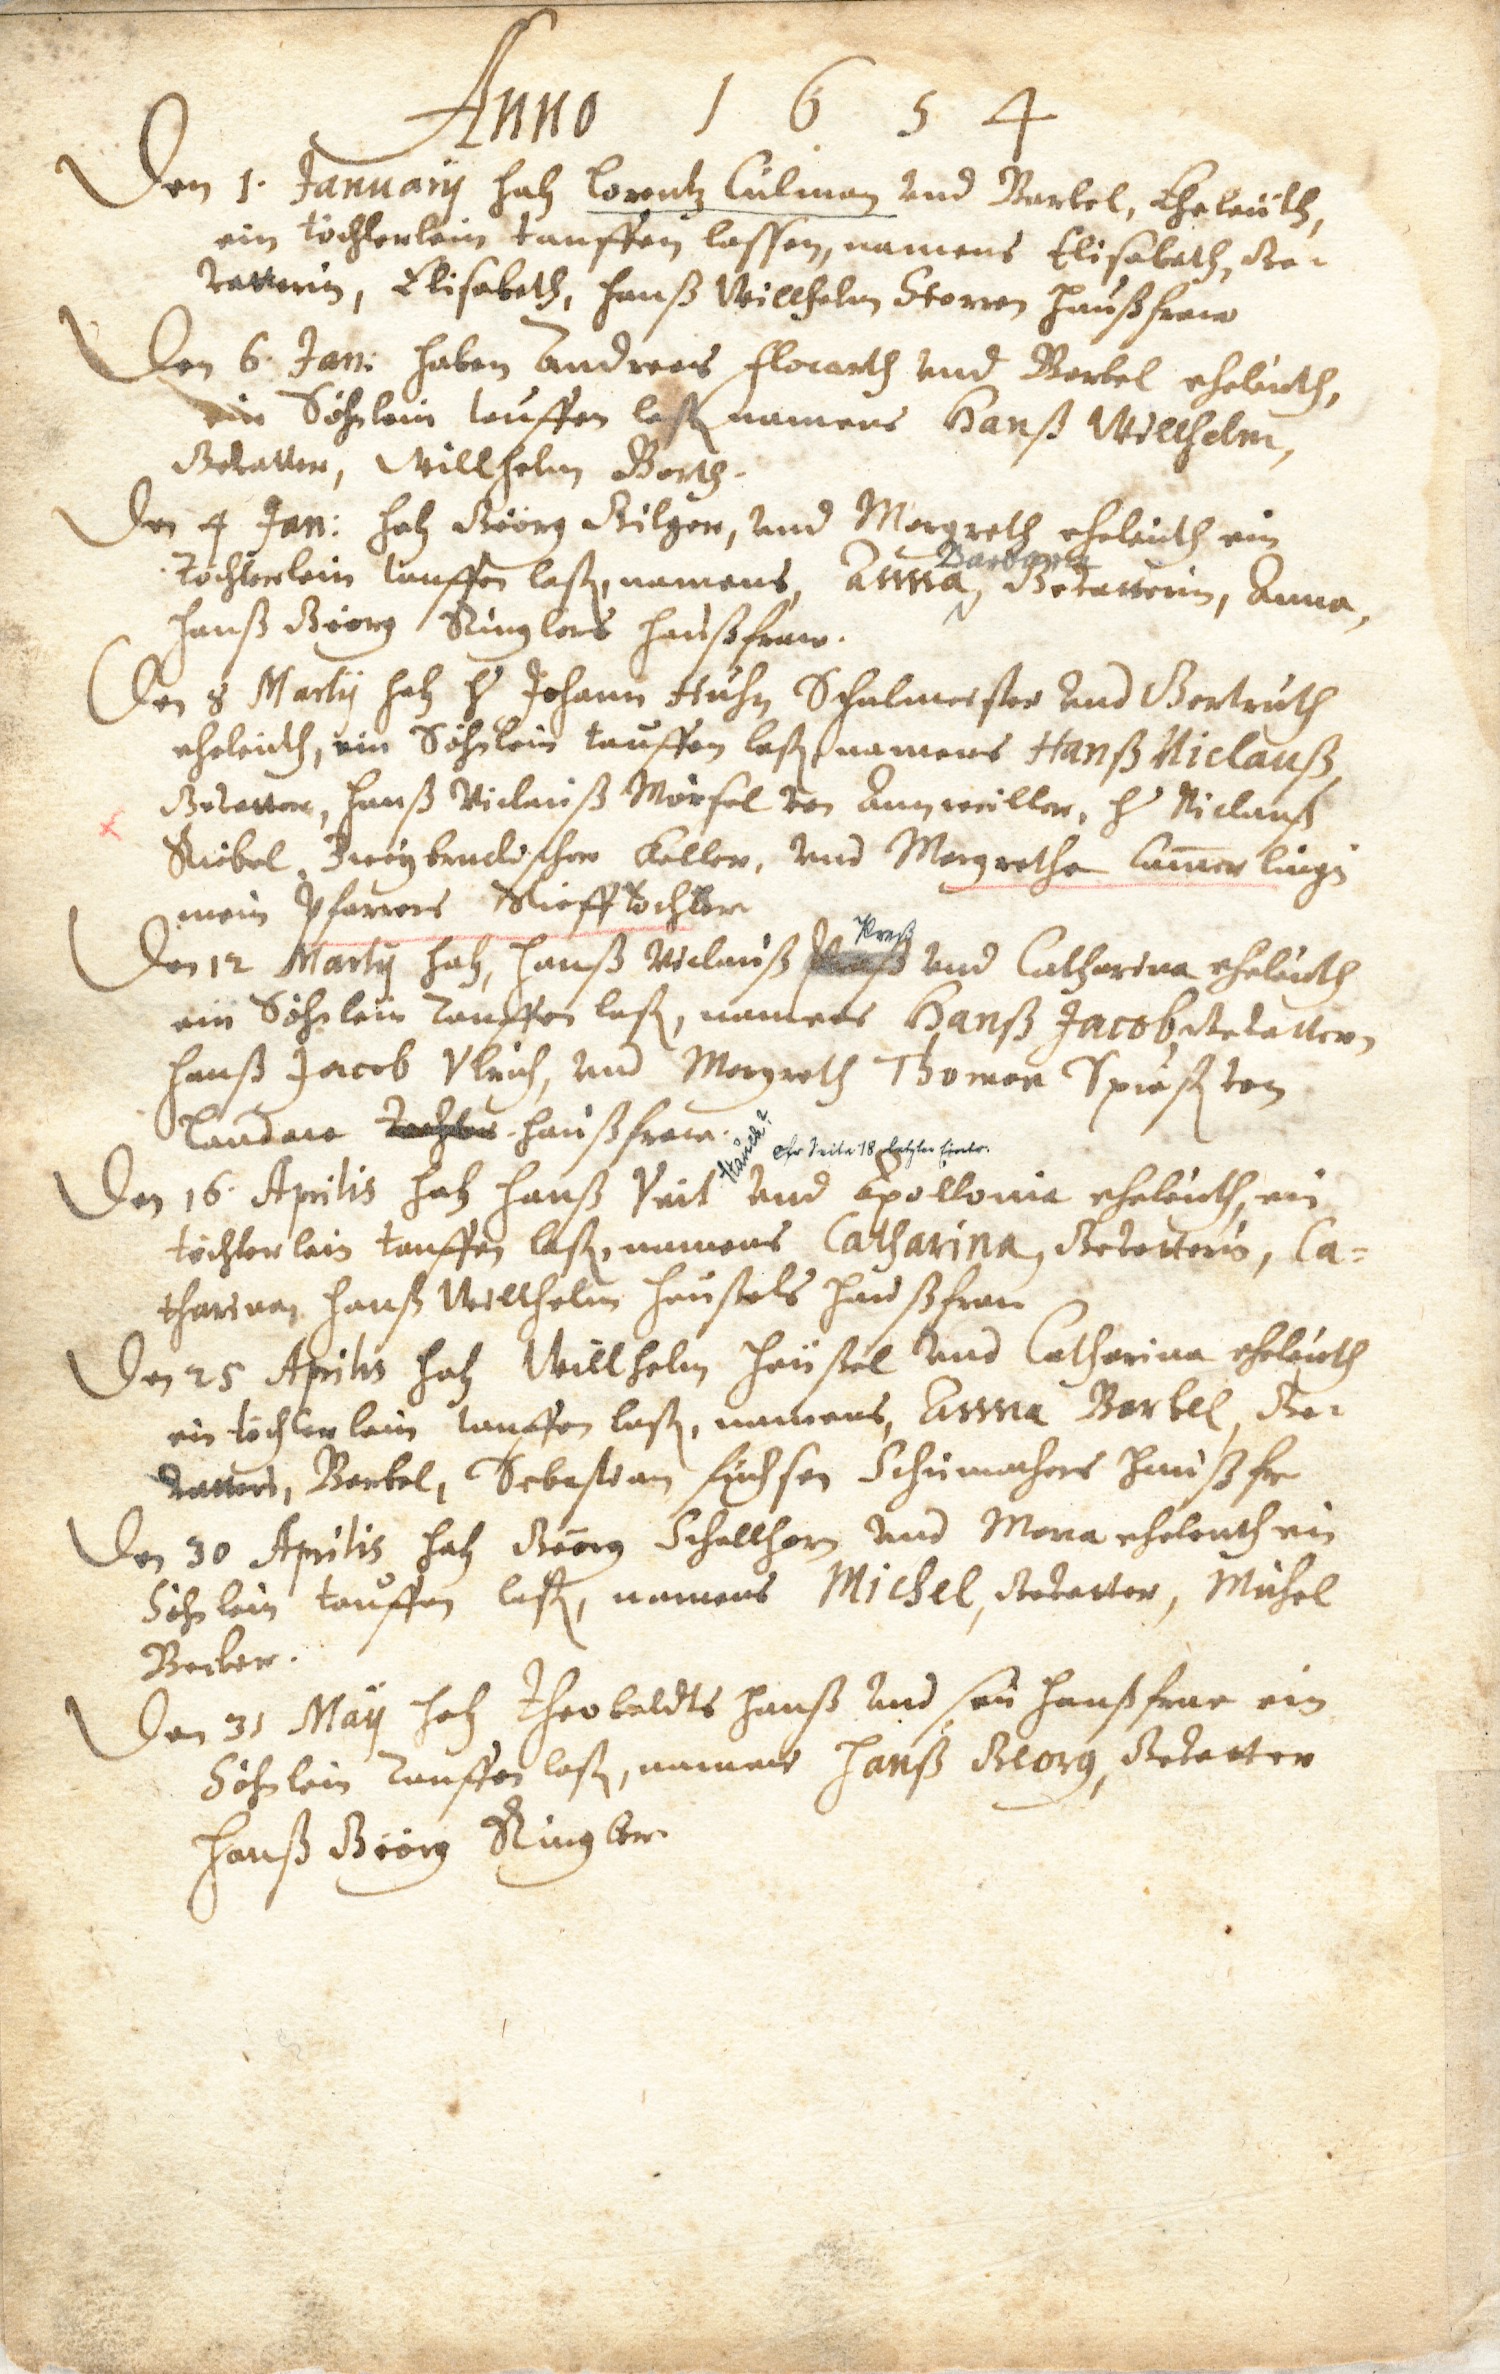 Anno 1654
Den 1. January hatt Lorentz Culman vnd Barbel, Eheleuth,
ein töchterlein tauffen lassen, namens Elisabeth, Ge-
vatterin, Elisabeth, Hanß Willhelm Storren Haußfraw
Den 6. Jan: haben Andreas und Barbel eheleuth,
ein Söhnlein tauffen laßen namens Hanß Willhelm,
Gevatter, Willhelm
Den 4 Jan: hatt Görg Gilger, vnd Margreth eheleuth ein
Barbara
töchterlein tauffen laßen, namens, Anna, Gevatterin, Anna,
Hanß Georg Ringlers Haußfraw.
Den 8 Martij hatt H. Johann Huhn Schulmeister vnd Gertruth
eheleuth, ein Söhnlein tauffen laßen namens Hanß Niclauß,
Gevatter, Hanß Niclauß Mörsel von Annweiller, H. Niclauß
Zweybruckischer Keller, vnd Margretha
mein Pfarrers Stiefftochter
Preß
Den 12 Martij hatt, Hanß Niclauß vnd Catharina eheleuth
ein Söhnlein Tauffen laßen, namens Hanß Jacob, Gevattern
Hanß Jacob Vlrich, vnd Margreth Thoman Spieß von
Landaw Haußfraw.
Hauck? cfr Seite 18 letzter Eintr.
Den 16. Aprilis hatt Hanß Veit vnd Apollonia eheleuth, ein
töchterlein tauffen laßen, namens Catharina, Gevatterin, Ca=
tharina, Hanß Willhelm Häußels Haußfraw
Den 25 Aprilis hatt Willhelm Häußel vnd Catharina eheleuth
ein töchterlein tauffen laßen, namens, Anna Barbel, Ge-
vatterin, Barbel, Sebastian Schumachers Haußfr
Den 30 Aprilis hatt Görg Schallhorn vnd Maria eheleuth ein
Söhnlein tauffen laßen, namens Michel, Gevatter, Michel
Becker.
Den 31 Maij hatt Theobaldts Hanß vnd sein Haußfraw ein
Söhnlein Tauffen laßen, namens Hanß Georg, Gevatter
Hanß Görg Ringler